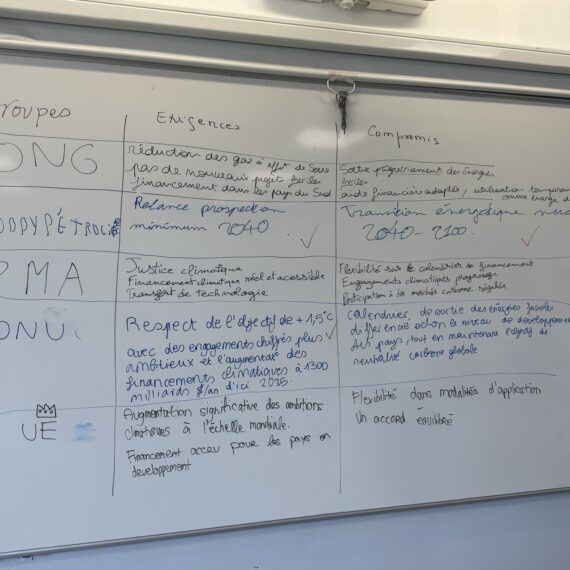 roupes
Exigences
Compromis
ONG
réduction des gaz à effet de Serre
pas de nouveaux projets fossiles
financement dans les pays du Sud
Sortie progressivement des énergies
fossiles
aide financière adaptés, utilisation temporaire
comme énergie de
Relance prospection
minimum 2040
Transition énergétique
2040-2100.
PMA
Justice climatique
Financement climatique réel et accessible
Transfert de technologie
Flexibilité sur le calendrier de financement
Engagements climatiques progressifs
Participation à des marchés carbone régulés
ONU
Respect de l'objectif de +1,5°C
avec des engagements chiffrés plus
ambitieux et l'augmentation des
financements climatiques à 1300
milliards $/an d'ici 2035.
Calendrier, de sortie des énergies fossiles
différencié selon le niveau de développement
du pays, tout en maintenant l'objectif de
neutralité carbone globale.
UE
Augmentation significative des ambitions
climatiques à l'échelle mondiale.
Financement accru pour les pays en
developpement
Flexibilité dans modalités d'application
Un accord équilibré